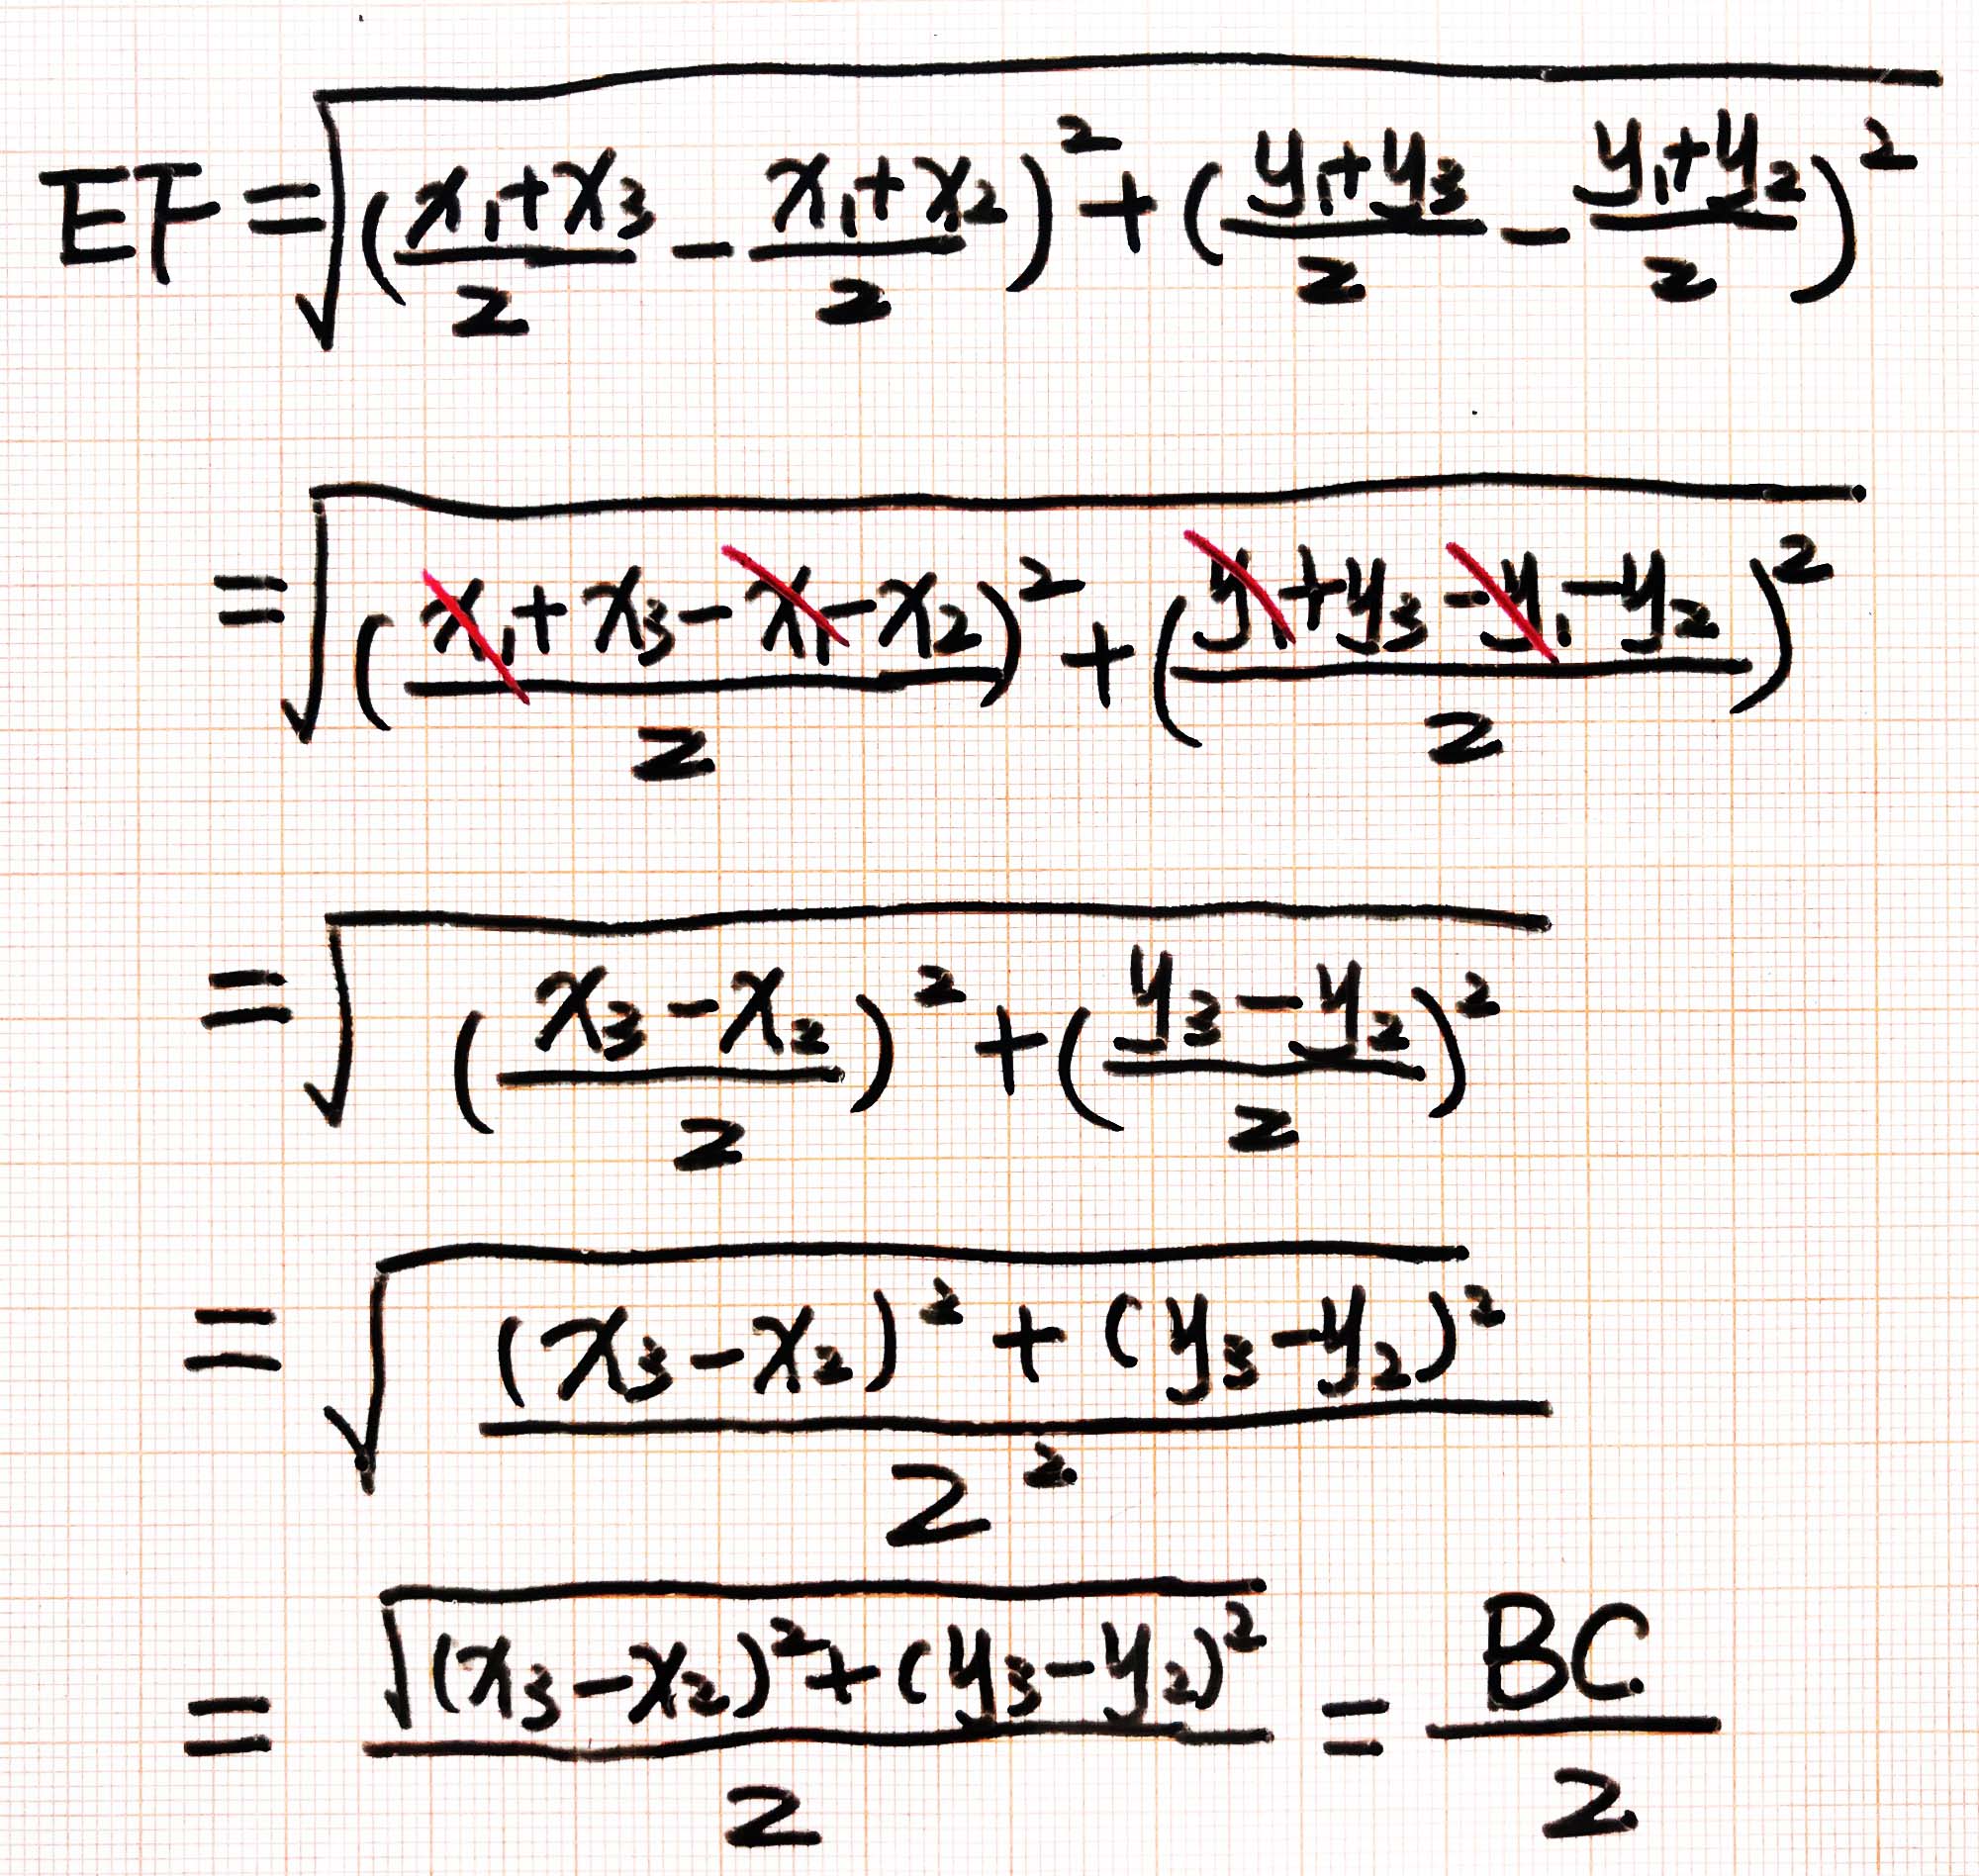 EF = √((x₁+x₃)/2 − (x₁+x₂)/2)² + ((y₁+y₃)/2 − (y₁+y₂)/2)²
= √((x₁+x₃−x₁−x₂)/2)² + ((y₁+y₃−y₁−y₂)/2)²
= √((x₃−x₂)/2)² + ((y₃−y₂)/2)²
= √((x₃−x₂)² + (y₃−y₂)²)/2²
= √((x₃−x₂)² + (y₃−y₂)²)/2 = BC/2